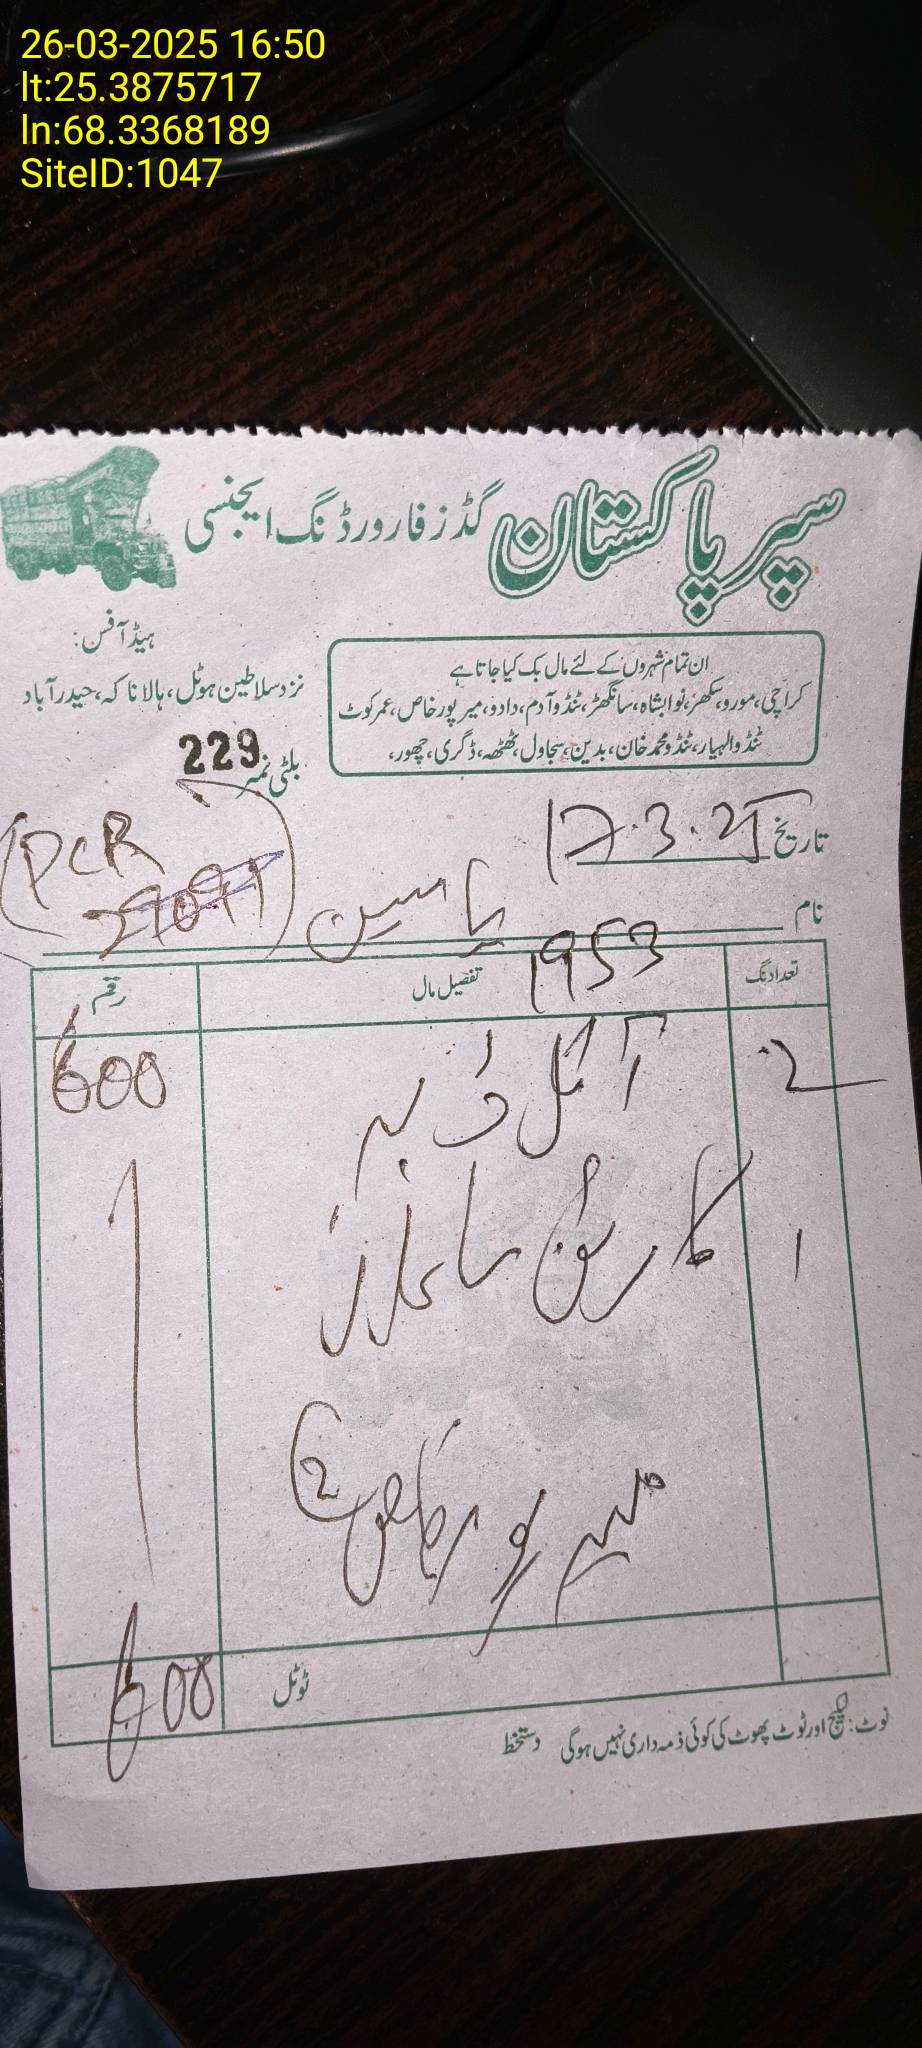 26-03-2025 16:50
lt:25.3875717
ln:68.3368189
SiteID:1047
سپر پاکستان گڈز فارورڈنگ ایجنسی
ہیڈ آفس:
نزد سلاطین ہوٹل، ہالا ناکہ، حیدرآباد
ان تمام شہروں کے لئے مال بک کیا جاتا ہے
کراچی، مورو، سکھر، نوابشاہ، سانگھڑ، ٹنڈوآدم، دادو، میرپورخاص، عمرکوٹ
ٹنڈوالہیار، ٹنڈومحمدخان، بدین، سجاول، ٹھٹھہ، ڈگری، چھور،
بلٹی نمبر 229
تاریخ 17.3.25
(PCR
نام یاسین
1953
تعداد نگ تفصیل مال رقم
2 آئل ڈبہ 600
1 کارٹن
میرپورخاص
ٹوٹل 600
نوٹ: لیکیج اور ٹوٹ پھوٹ کی کوئی ذمہ داری نہیں ہوگی دستخط